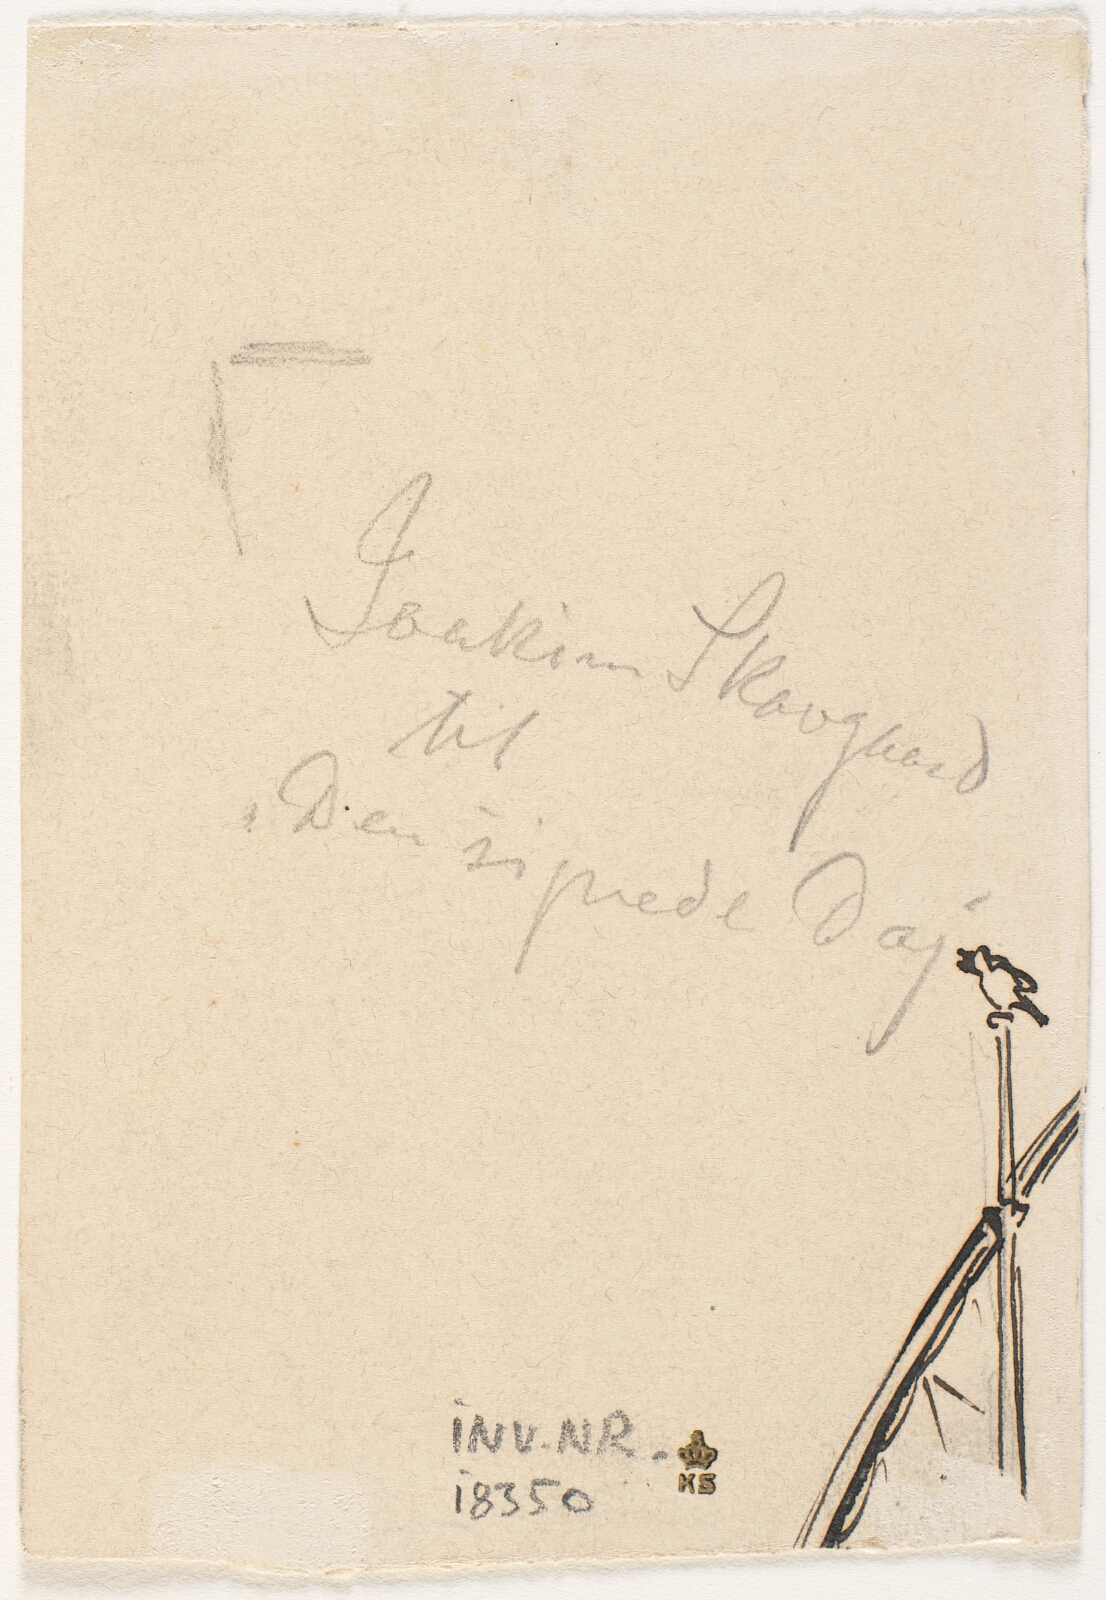 Joakim Skovgaard
til
„Den signede Dag"
INV. NR.
18350
KS